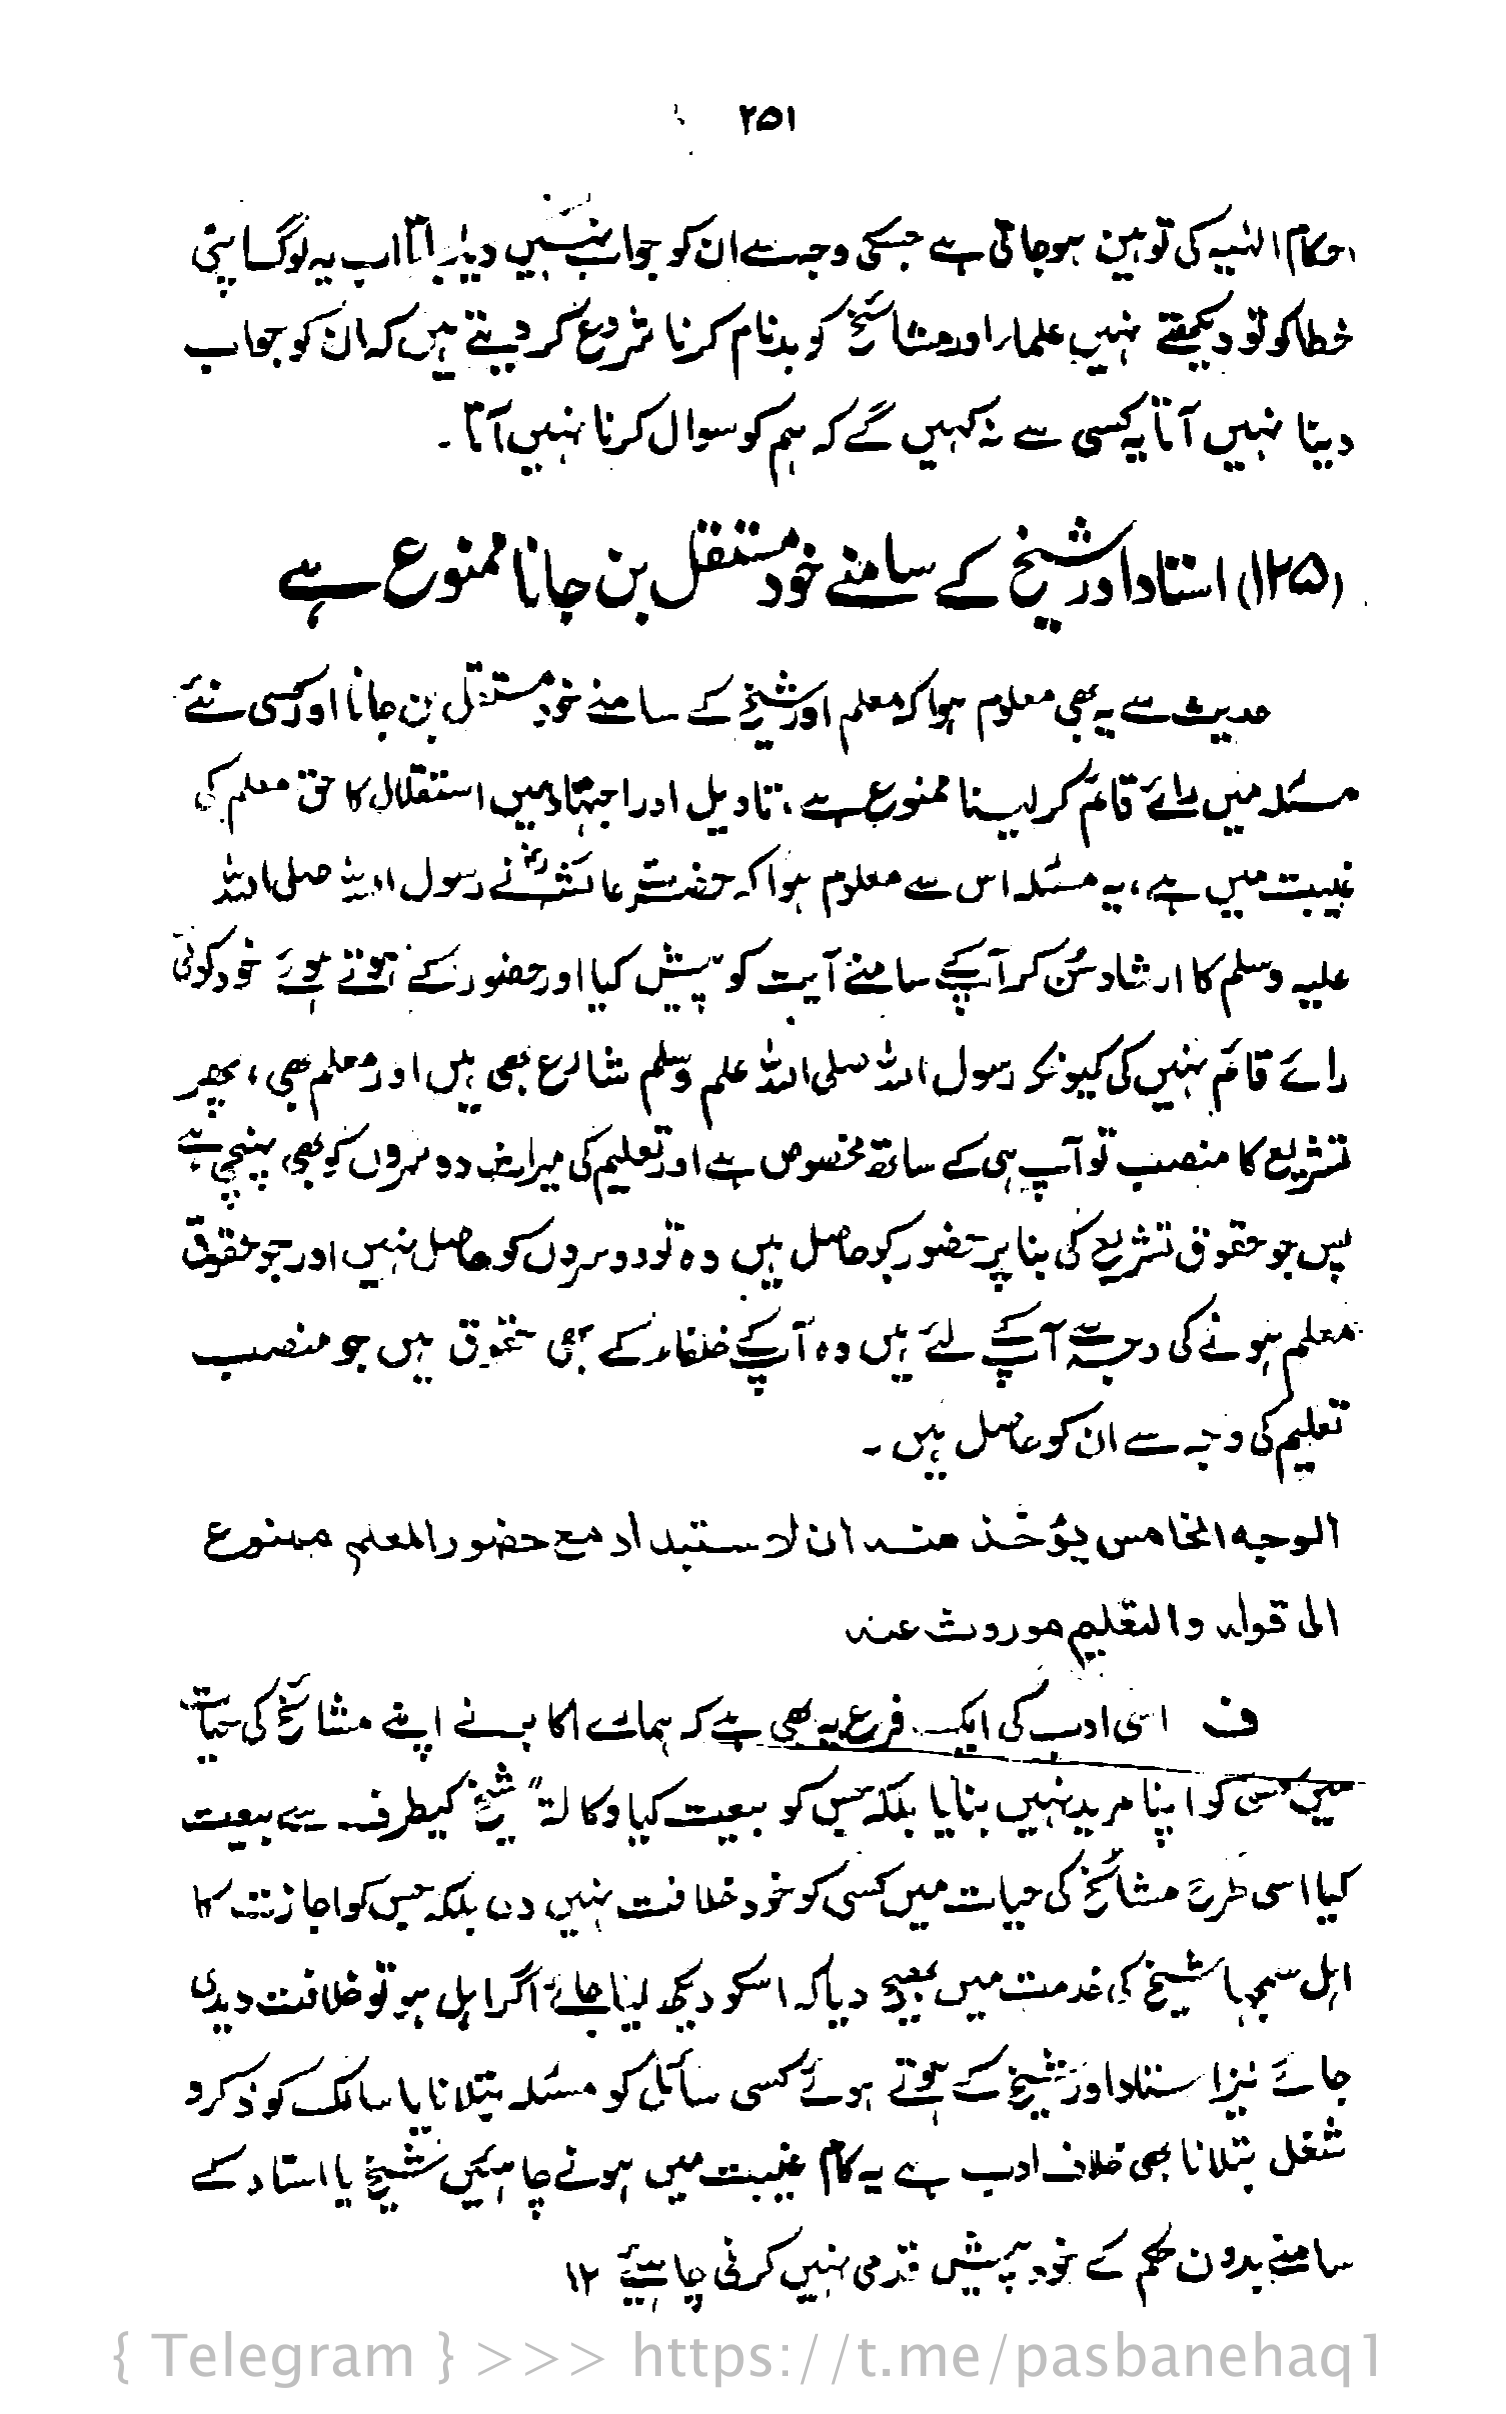 ۲۵۱
احکام الٰہیہ کی توہین ہوجاتی ہے جسکی وجہ سے ان کو جواب نہیں دیا جاتا اب یہ لوگ اپنی
خطا کو تو دیکھتے نہیں علماء اور مشائخ کو بدنام کرنا شروع کر دیتے ہیں کہ ان کو جواب
دینا نہیں آتا یہ کسی سے نہ کہیں گے کہ ہم کو سوال کرنا نہیں آتا۔
(۱۲۵) استاد اور شیخ کے سامنے خود مستقل بن جانا ممنوع ہے
حدیث سے یہ بھی معلوم ہوا کہ معلم اور شیخ کے سامنے خود مستقل بن جانا اور کسی نئے
مسئلہ میں رائے قائم کر لینا ممنوع ہے، تاویل اور اجتہاد میں استقلال کا حق معلم کی
غیبت میں ہے، یہ مسئلہ اس سے معلوم ہوا کہ حضرت عائشہؓ نے رسول اللہ صلی اللہ
علیہ وسلم کا ارشاد سُن کر آپکے سامنے آیت کو پیش کیا اور حضور کے ہوتے ہوئے خود کوئی
رائے قائم نہیں کی کیونکہ رسول اللہ صلی اللہ علم وسلم شارع بھی ہیں اور معلم بھی، پھر
تشریع کا منصب تو آپ ہی کے ساتھ مخصوص ہے اور تعلیم کی میراث دوسروں کو بھی پہنچی ہے
پس جو حقوق تشریع کی بنا پر حضور کو حاصل ہیں وہ تو دوسروں کو حاصل نہیں اور جو حقوق
معلم ہونے کی وجہ سے آپکے لئے ہیں وہ آپکے خلفاء کے بھی حقوق ہیں جو منصب
تعلیم کی وجہ سے ان کو حاصل ہیں۔
الوجہ الخامس یؤخذ منہ ان الاستبداد مع حضور المعلم ممنوع
الی قولہ والتعلیم موروث عنہ
ف اسی ادب کی ایک فرع یہ بھی ہے کہ ہمارے اکابر نے اپنے مشائخ کی حیات
میں کسی کو اپنا مرید نہیں بنایا بلکہ جس کو بیعت کیا وکالۃً شیخ کیطرف سے بیعت
کیا اسی طرح مشائخ کی حیات میں کسی کو خود خلافت نہیں دی بلکہ جس کو اجازت کا
اہل سمجھا شیخ کی خدمت میں بھیج دیا کہ اسکو دیکھ لیا جائے اگر اہل ہو تو خلافت دیدی
جائے نیز استاد اور شیخ کے ہوتے ہوئے کسی سائل کو مسئلہ بتلانا یا سالک کو ذکر و
شغل بتلانا بھی خلاف ادب ہے یہ کام غیبت میں ہونے چاہئیں شیخ یا استاد کے
سامنے بدون حکم کے خود پیش قدمی نہیں کرنی چاہئے ۱۲
{ Telegram } >>> https://t.me/pasbanehaq1